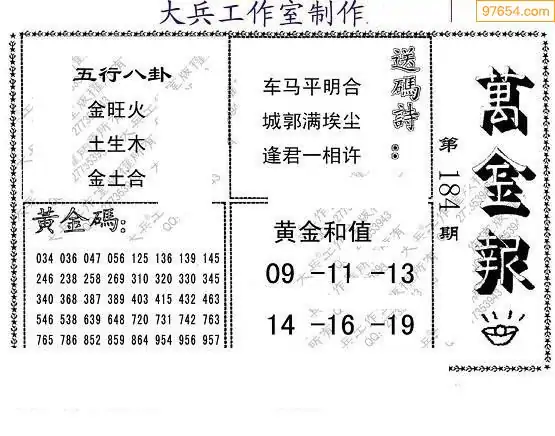 大兵工作室制作
97654.com
萬金報
第184期
五行八卦
金旺火
土生木
金土合
送碼詩:
车马平明合
城郭满埃尘
逢君一相许
黄金碼:
034 036 047 056 125 136 139 145
246 238 258 269 310 320 330 345
340 368 387 389 403 415 432 463
546 538 639 648 720 731 742 763
765 786 852 859 864 954 956 957
黄金和值
09 -11 -13
14 -16 -19